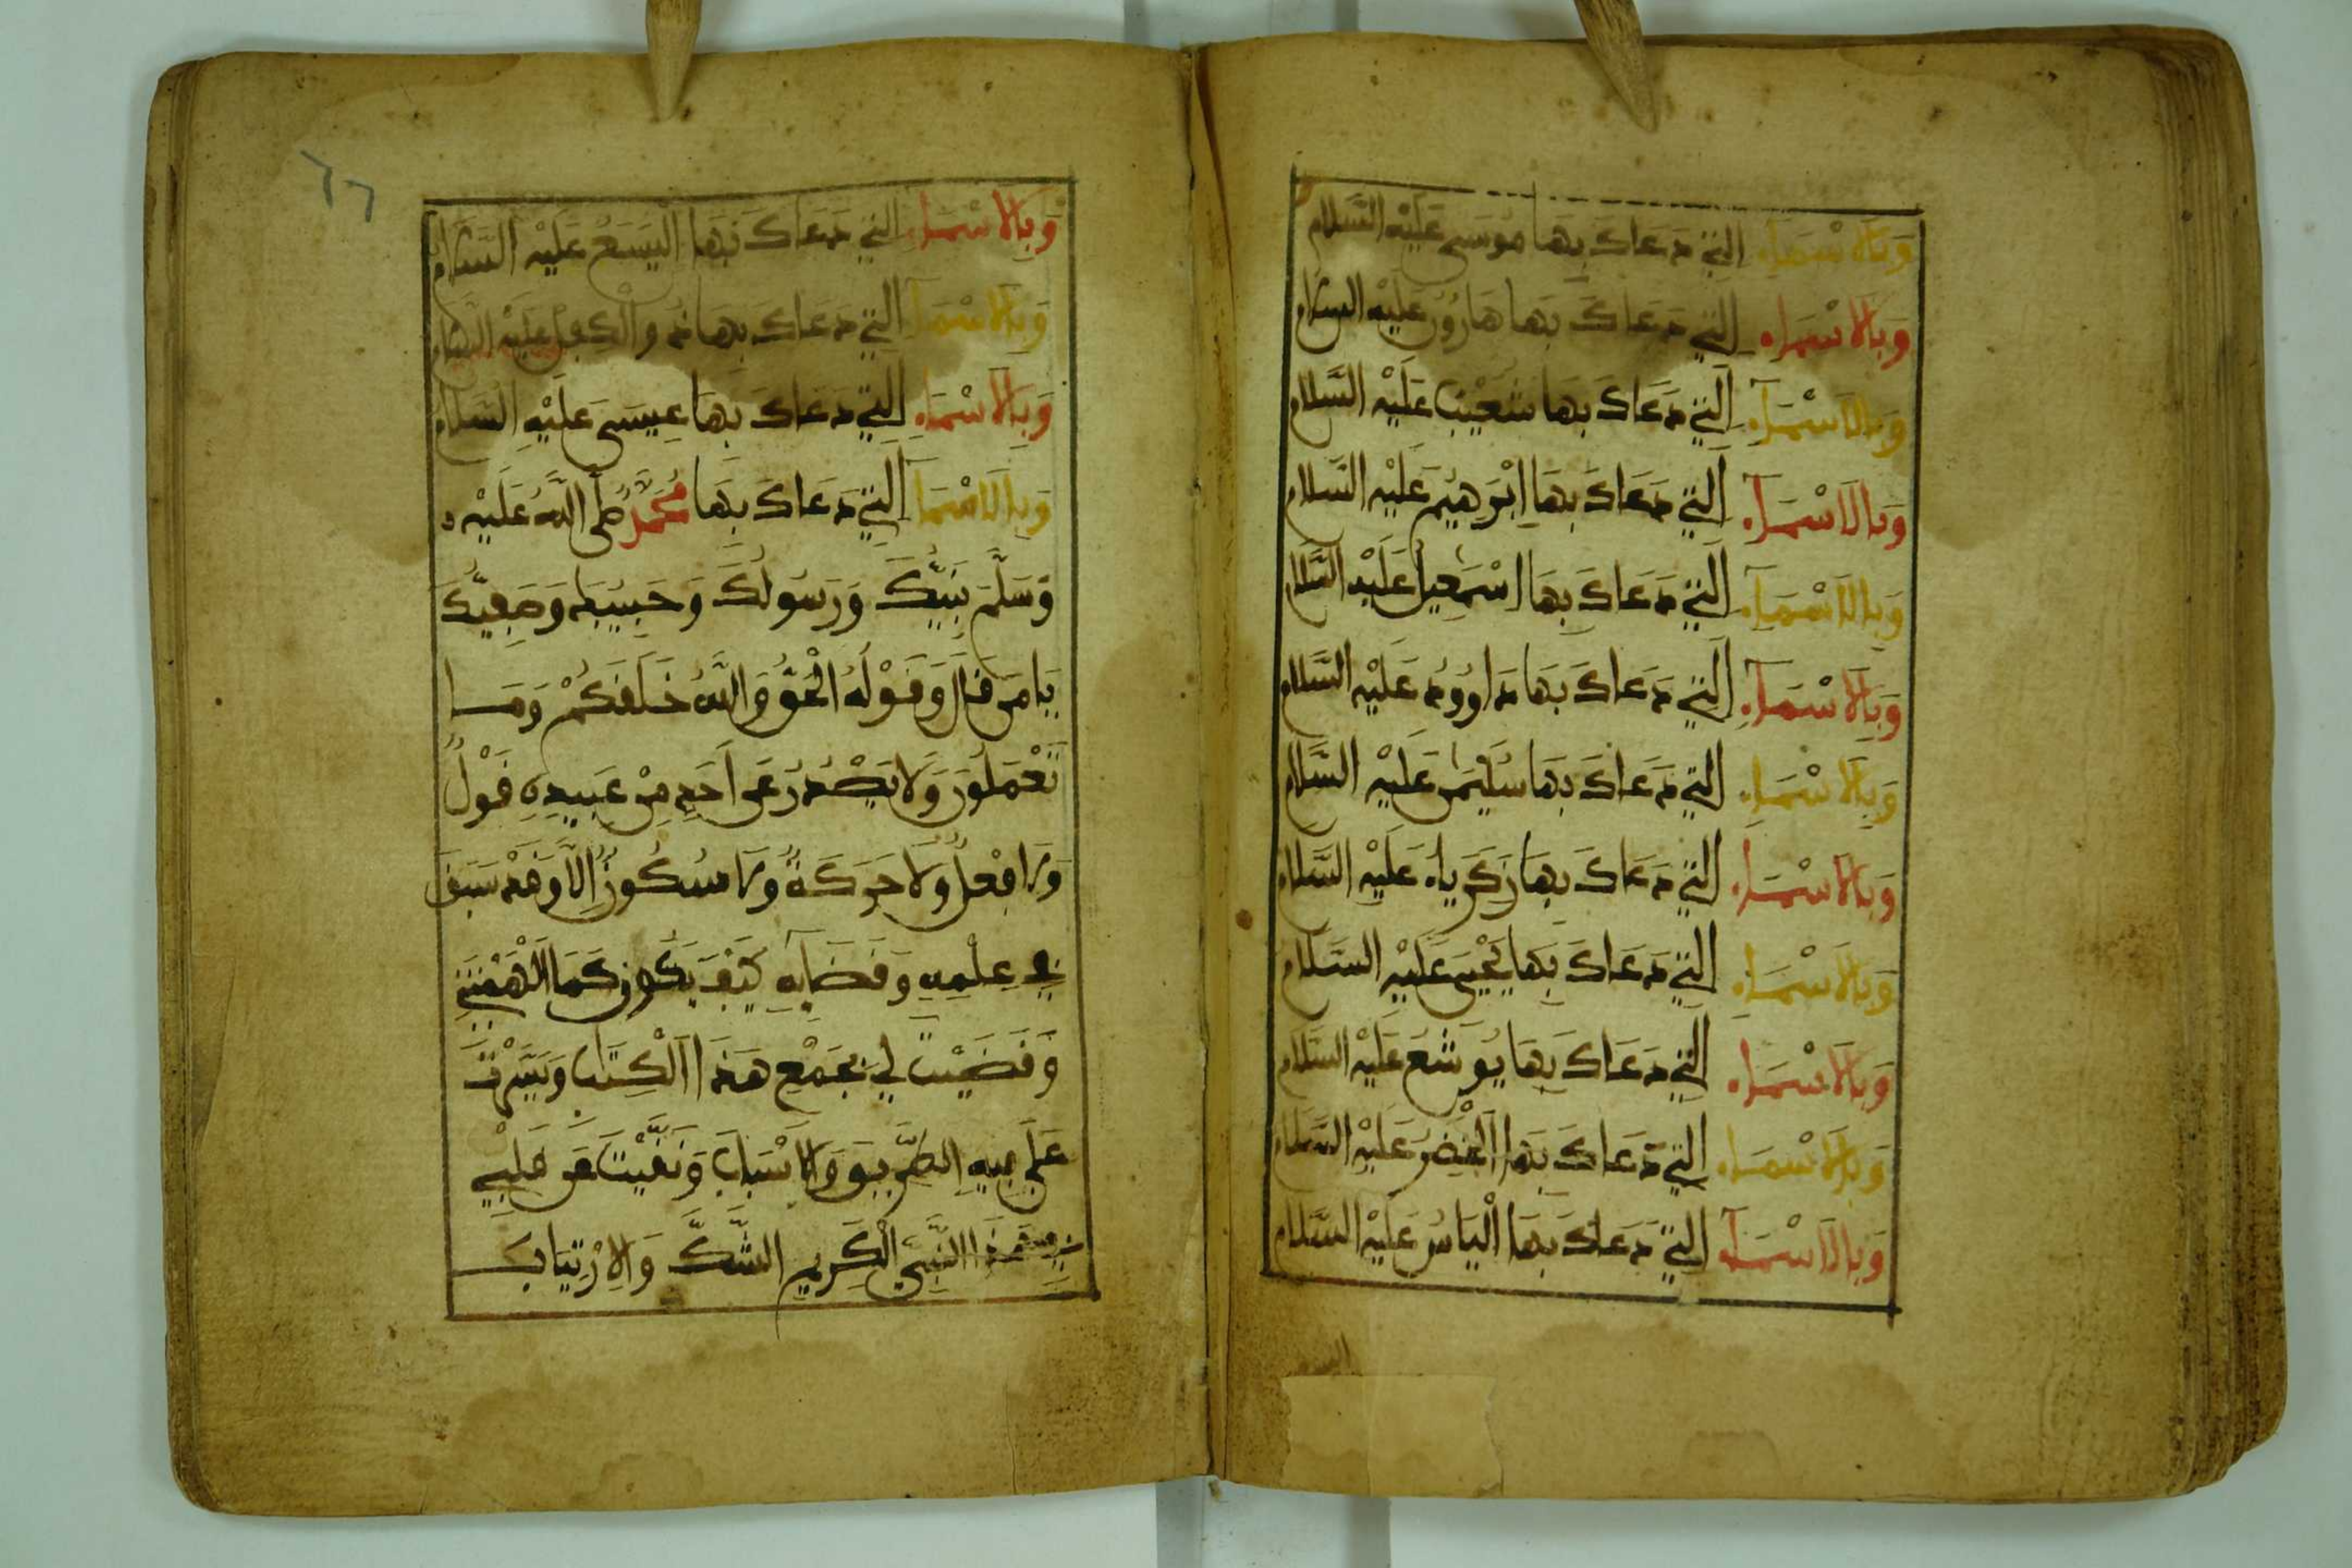 وَبِالْأَسْمَاءِ الَّتِي دَعَاكَ بِهَا مُوسَى عَلَيْهِ السَّلَام
وَبِالْأَسْمَاءِ الَّتِي دَعَاكَ بِهَا هَارُونُ عَلَيْهِ السَّلَام
وَبِالْأَسْمَاءِ الَّتِي دَعَاكَ بِهَا شُعَيْبٌ عَلَيْهِ السَّلَام
وَبِالْأَسْمَاءِ الَّتِي دَعَاكَ بِهَا إِبْرَهِيمُ عَلَيْهِ السَّلَام
وَبِالْأَسْمَاءِ الَّتِي دَعَاكَ بِهَا إِسْمَعِيلُ عَلَيْهِ السَّلَام
وَبِالْأَسْمَاءِ الَّتِي دَعَاكَ بِهَا دَاوُودُ عَلَيْهِ السَّلَام
وَبِالْأَسْمَاءِ الَّتِي دَعَاكَ بِهَا سُلَيْمَنُ عَلَيْهِ السَّلَام
وَبِالْأَسْمَاءِ الَّتِي دَعَاكَ بِهَا زَكَرِيَاءُ عَلَيْهِ السَّلَام
وَبِالْأَسْمَاءِ الَّتِي دَعَاكَ بِهَا يَحْيَى عَلَيْهِ السَّلَام
وَبِالْأَسْمَاءِ الَّتِي دَعَاكَ بِهَا يُوشَعُ عَلَيْهِ السَّلَام
وَبِالْأَسْمَاءِ الَّتِي دَعَاكَ بِهَا الْخَضِرُ عَلَيْهِ السَّلَام
وَبِالْأَسْمَاءِ الَّتِي دَعَاكَ بِهَا إِلْيَاسُ عَلَيْهِ السَّلَام
٦٦
وَبِالْأَسْمَاءِ الَّتِي دَعَاكَ بِهَا الْيَسَعُ عَلَيْهِ السَّلَام
وَبِالْأَسْمَاءِ الَّتِي دَعَاكَ بِهَا ذُو الْكِفْلِ عَلَيْهِ السَّلَام
وَبِالْأَسْمَاءِ الَّتِي دَعَاكَ بِهَا عِيسَى عَلَيْهِ السَّلَام
وَبِالْأَسْمَاءِ الَّتِي دَعَاكَ بِهَا مُحَمَّدٌ صَلَّى اللَّهُ عَلَيْهِ وَ
وَسَلَّمَ نَبِيُّكَ وَرَسُولُكَ وَحَبِيبُكَ وَصَفِيُّكَ
يَا مَنْ قَالَ وَقَوْلُهُ الْحَقُّ وَاللَّهُ خَلَقَكُمْ وَمَا
تَعْمَلُونَ وَلَا يَصْدُرُ عَنْ أَحَدٍ مِنْ عَبِيدِهِ قَوْلٌ
وَلَا فِعْلٌ وَلَا حَرَكَةٌ وَلَا سُكُونٌ إِلَّا وَقَدْ سَبَقَ
فِي عِلْمِهِ وَقَضَائِهِ كَيْفَ يَكُونُ كَمَا أَلْهَمْتَنِي
وَقَضَيْتَ لِي بِجَمْعِ هَذَا الْكِتَابِ وَيَسَّرْتَ
عَلَيَّ فِيهِ الطَّرِيقَ وَالْأَسْبَابَ وَنَفَيْتَ عَنْ قَلْبِي
فِي هَذَا النَّبِيِّ الْكَرِيمِ الشَّكَّ وَالِارْتِيَابَ